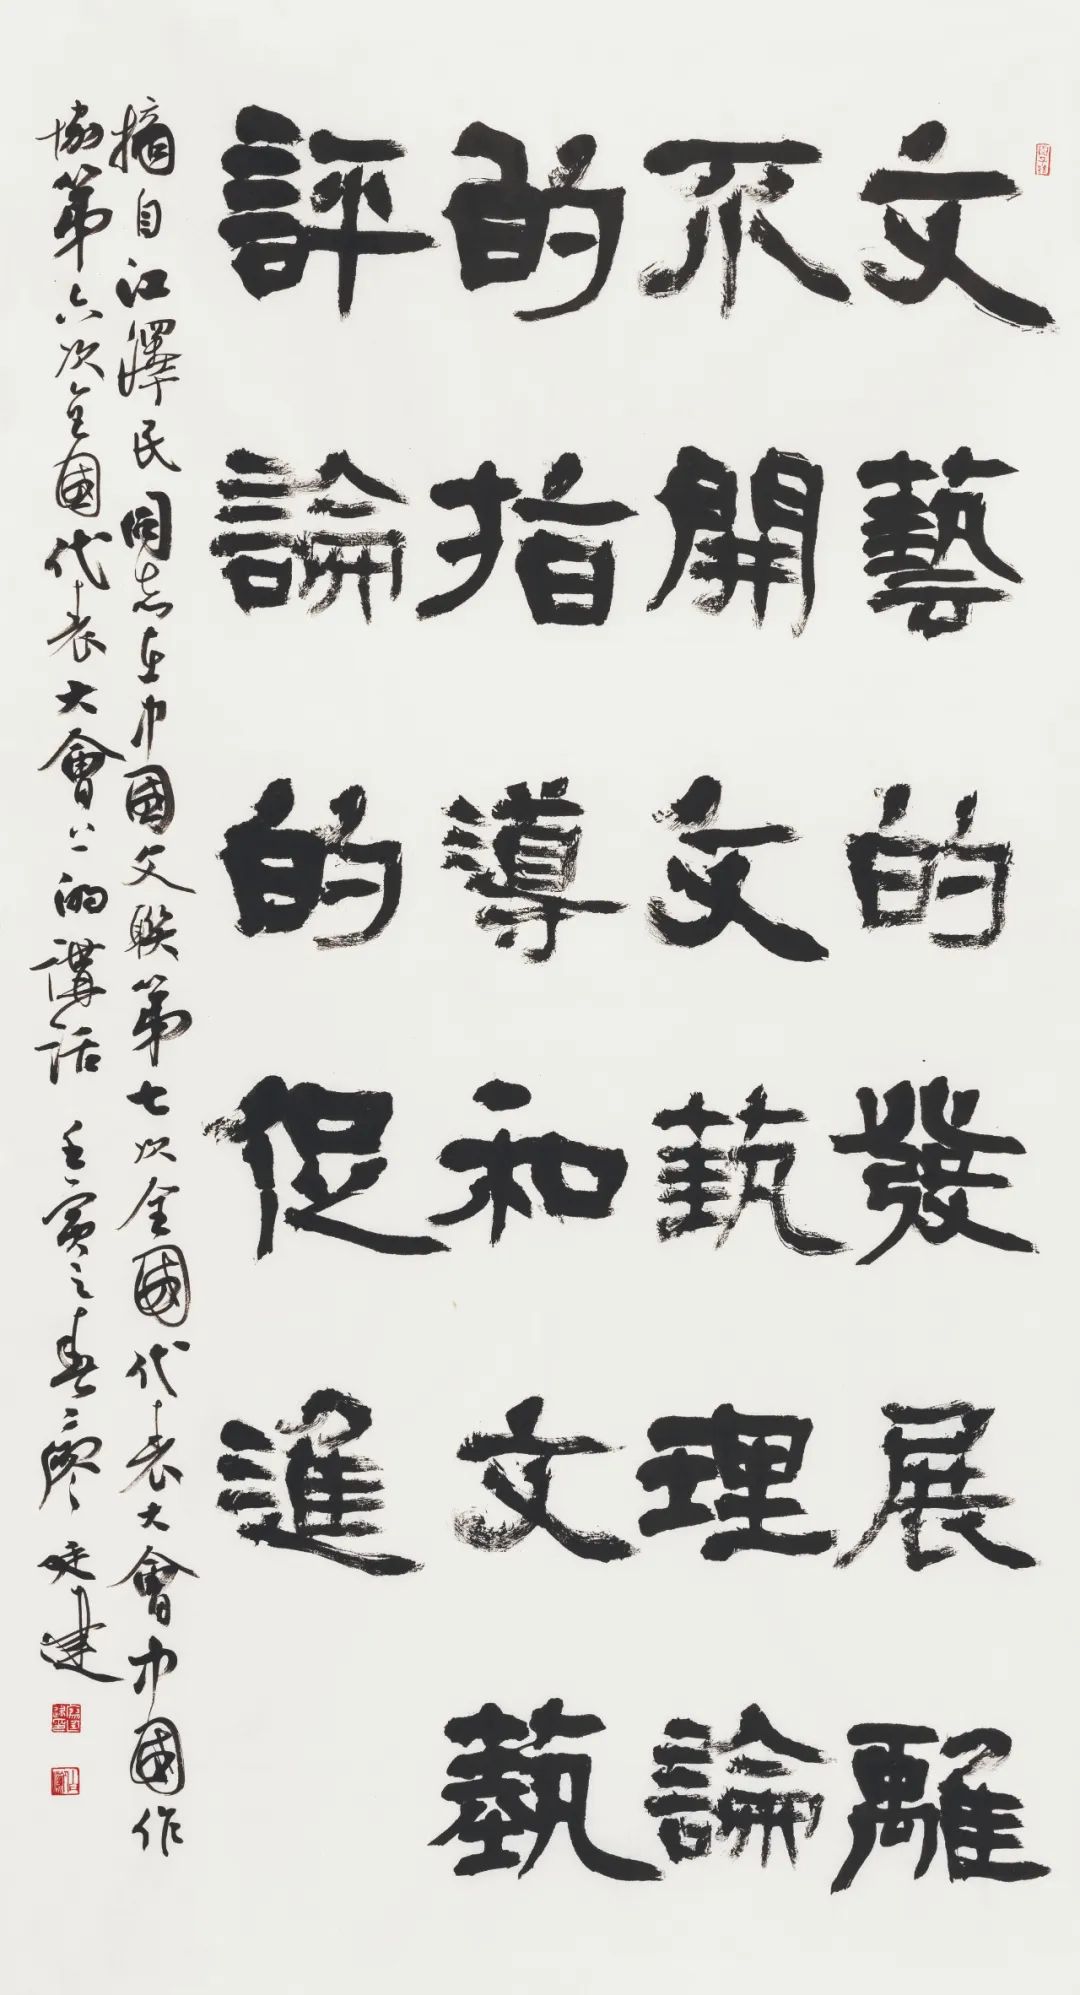 文藝的發展離
不開文蓺理論
的指導和文蓺
評論的促進
摘自江澤民同志在中國文聯第七次全國代表大會中國作
協第六次全國代表大會上的講話 壬寅之春 廖廷建